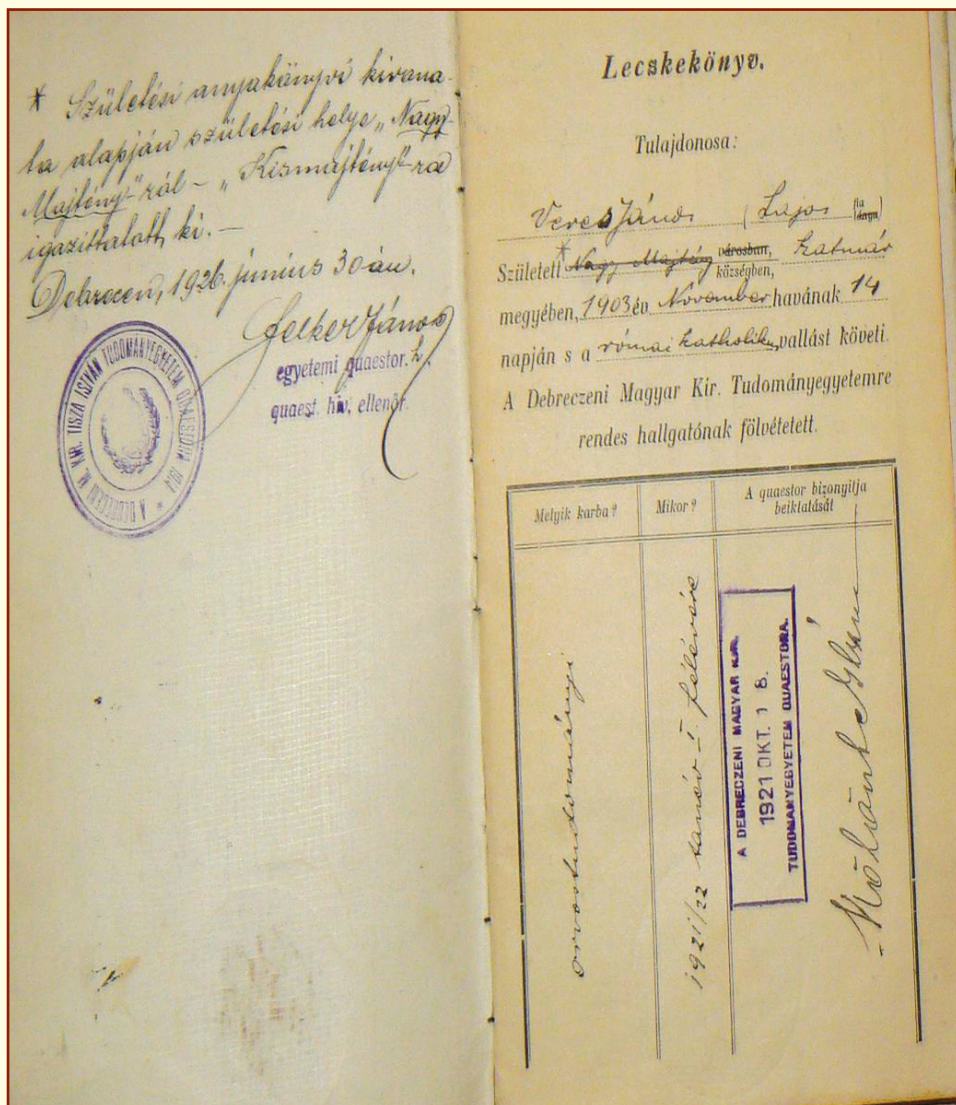 * Születési anyakönyvi kivona-
ta alapján születési helye „Nagy-
Majtény"-ról – „Kismajtény"-ra
igazíttatott ki. –
Debrecen, 1926. június 30-án.
Felker János
egyetemi quaestor. h.
quaest. hiv. ellenőr.
A DEBRECENI M. KIR. TISZA ISTVÁN TUDOMÁNYEGYETEM QUAESTURA 1914
Leczkekönyv.
Tulajdonosa:
Veres János (Lajos fia leánya)
Született * Nagy Majtény városban, községben, Szatmár
megyében, 1903 év November havának 14
napján s a római katholikus vallást követi.
A Debreczeni Magyar Kir. Tudományegyetemre
rendes hallgatónak fölvétetett.
Melyik karba? Mikor? A quaestor bizonyitja
beiktatását
orvostudományi
1921/22 tanév I. félévére
A DEBRECZENI MAGYAR KIR.
1921 OKT. 18.
TUDOMÁNYEGYETEM QUAESTORA.